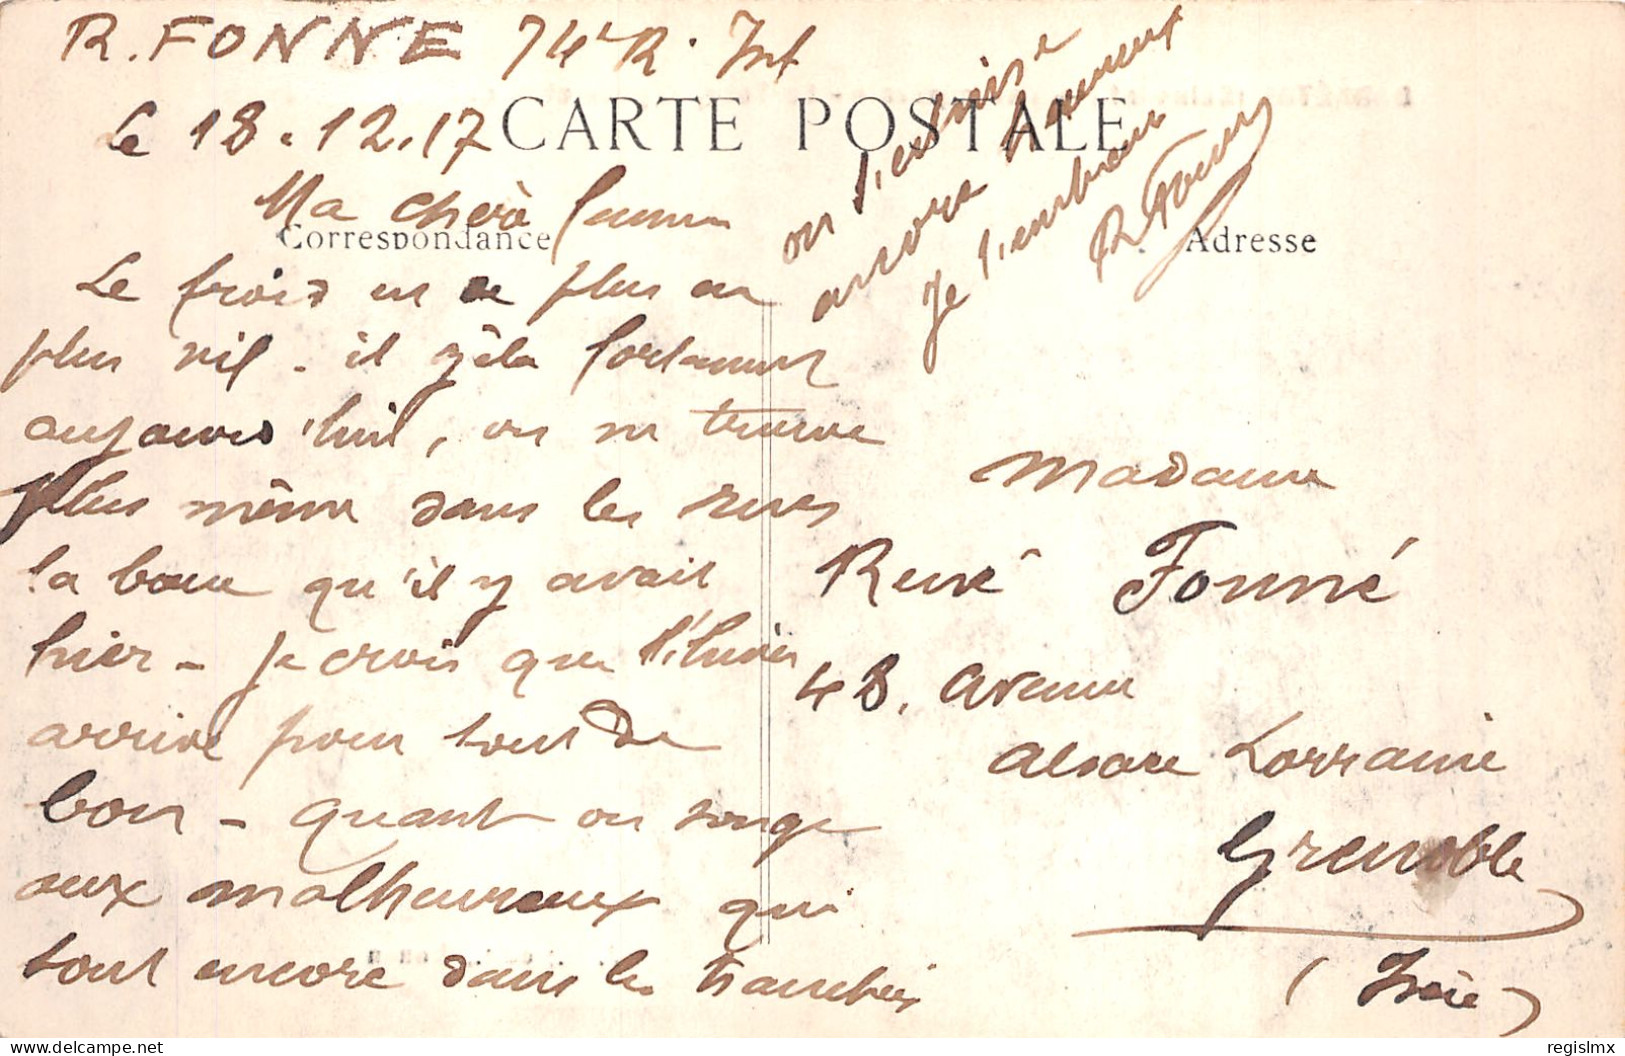 R. FONNE 74e R. Inf
CARTE POSTALE
le 18.12.17
Ma chère femme
Correspondance
Le froid en de plus en
plus vif - il gèle fortement
aujourd'hui, on ne trouve
plus même dans les rues
la boue qu'il y avait
hier - Je crois que l'hiver
arrive pour tout de
bon - quant on songe
aux malheureux qui
sont encore dans les tranchées
on
encore
Je t'embrasse
R Fonné
Adresse
Madame
René Fonné
48, avenue
Alsace Lorraine
Grenoble
(Isère)
regislmx